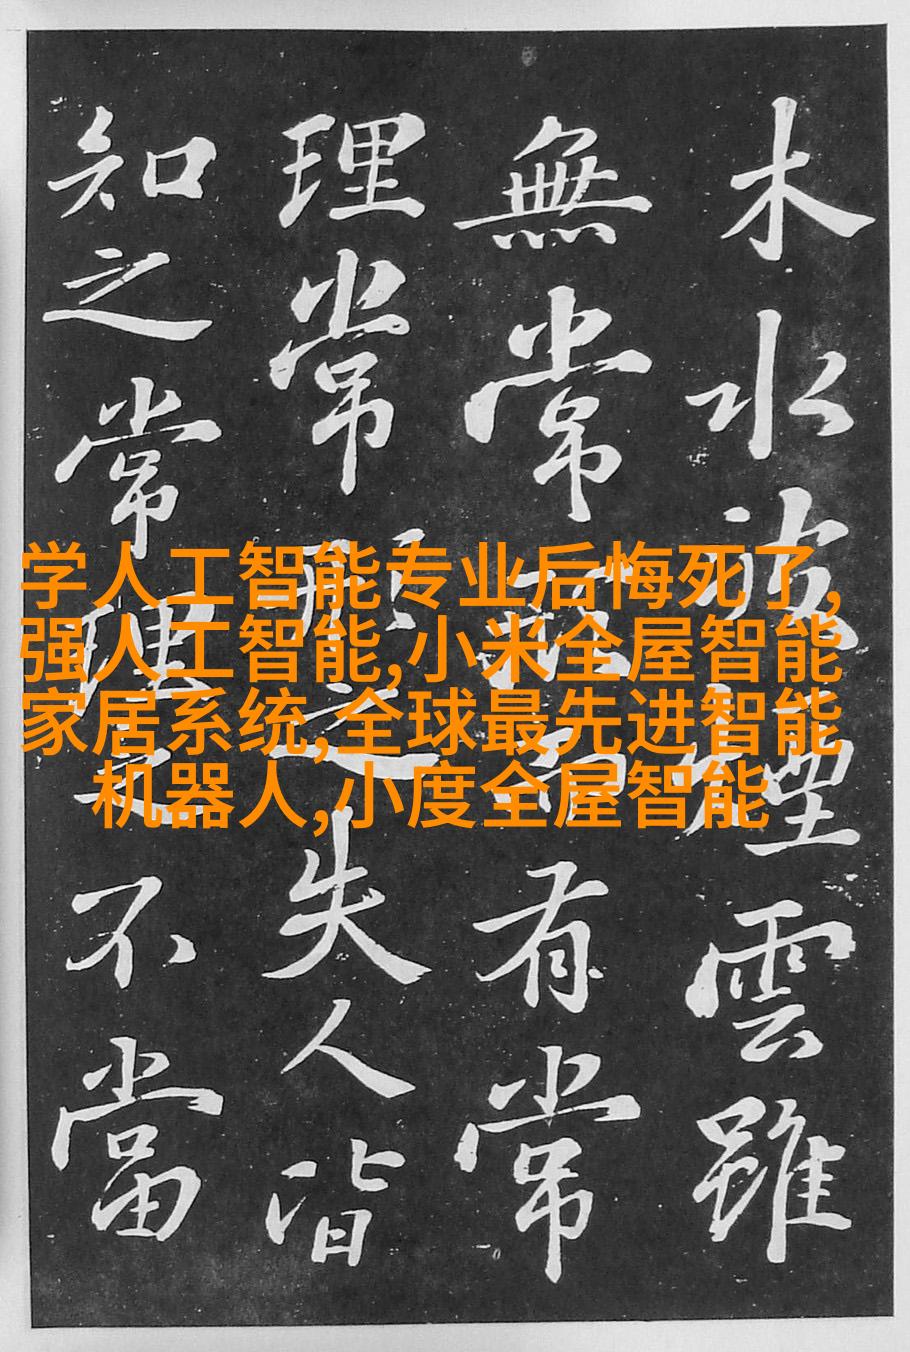 木水波煙雲雖
無常形而有常
理常形之失人皆
知之常理之不當
学人工智能专业后悔死了,
强人工智能,小米全屋智能
家居系统,全球最先进智能
机器人,小度全屋智能